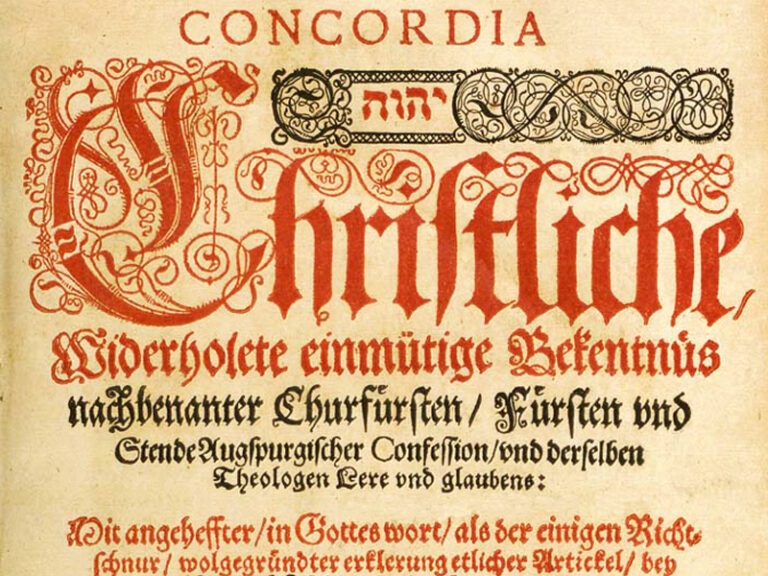 CONCORDIA
יהוה
Christliche/
Widerholete einmütige Bekentnüs
nachbenanter Churfürsten/ Fürsten vnd
Stende Augspurgischer Confession/vnd derselben
Theologen Lere vnd glaubens:
Mit angeheffter/in Gottes wort/ als der einigen Richt-
schnur/ wolgegründter erklerung etlicher Artickel/ bey